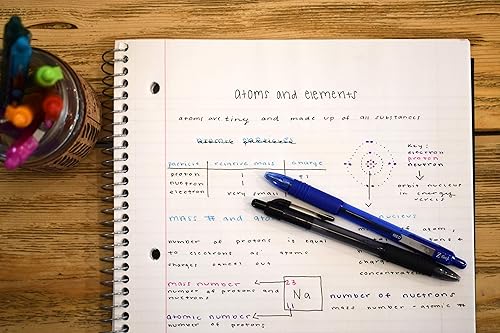 atoms and elements
atoms are tiny and made up of all substances
atomic particles
particle relative mass charge
proton 1 +1
nuetron 1
electron very small
Key:
electron
proton
neutron
orbit nucleus
in energy
mass # and
nucleus
number of protons is equal
to electrons as atomic
charges cancel out
of atom,
mass number
number of protons and
nuetrons
23
Na
11
atomic number
number of protons;
number of nuetrons
mass number - atomic #